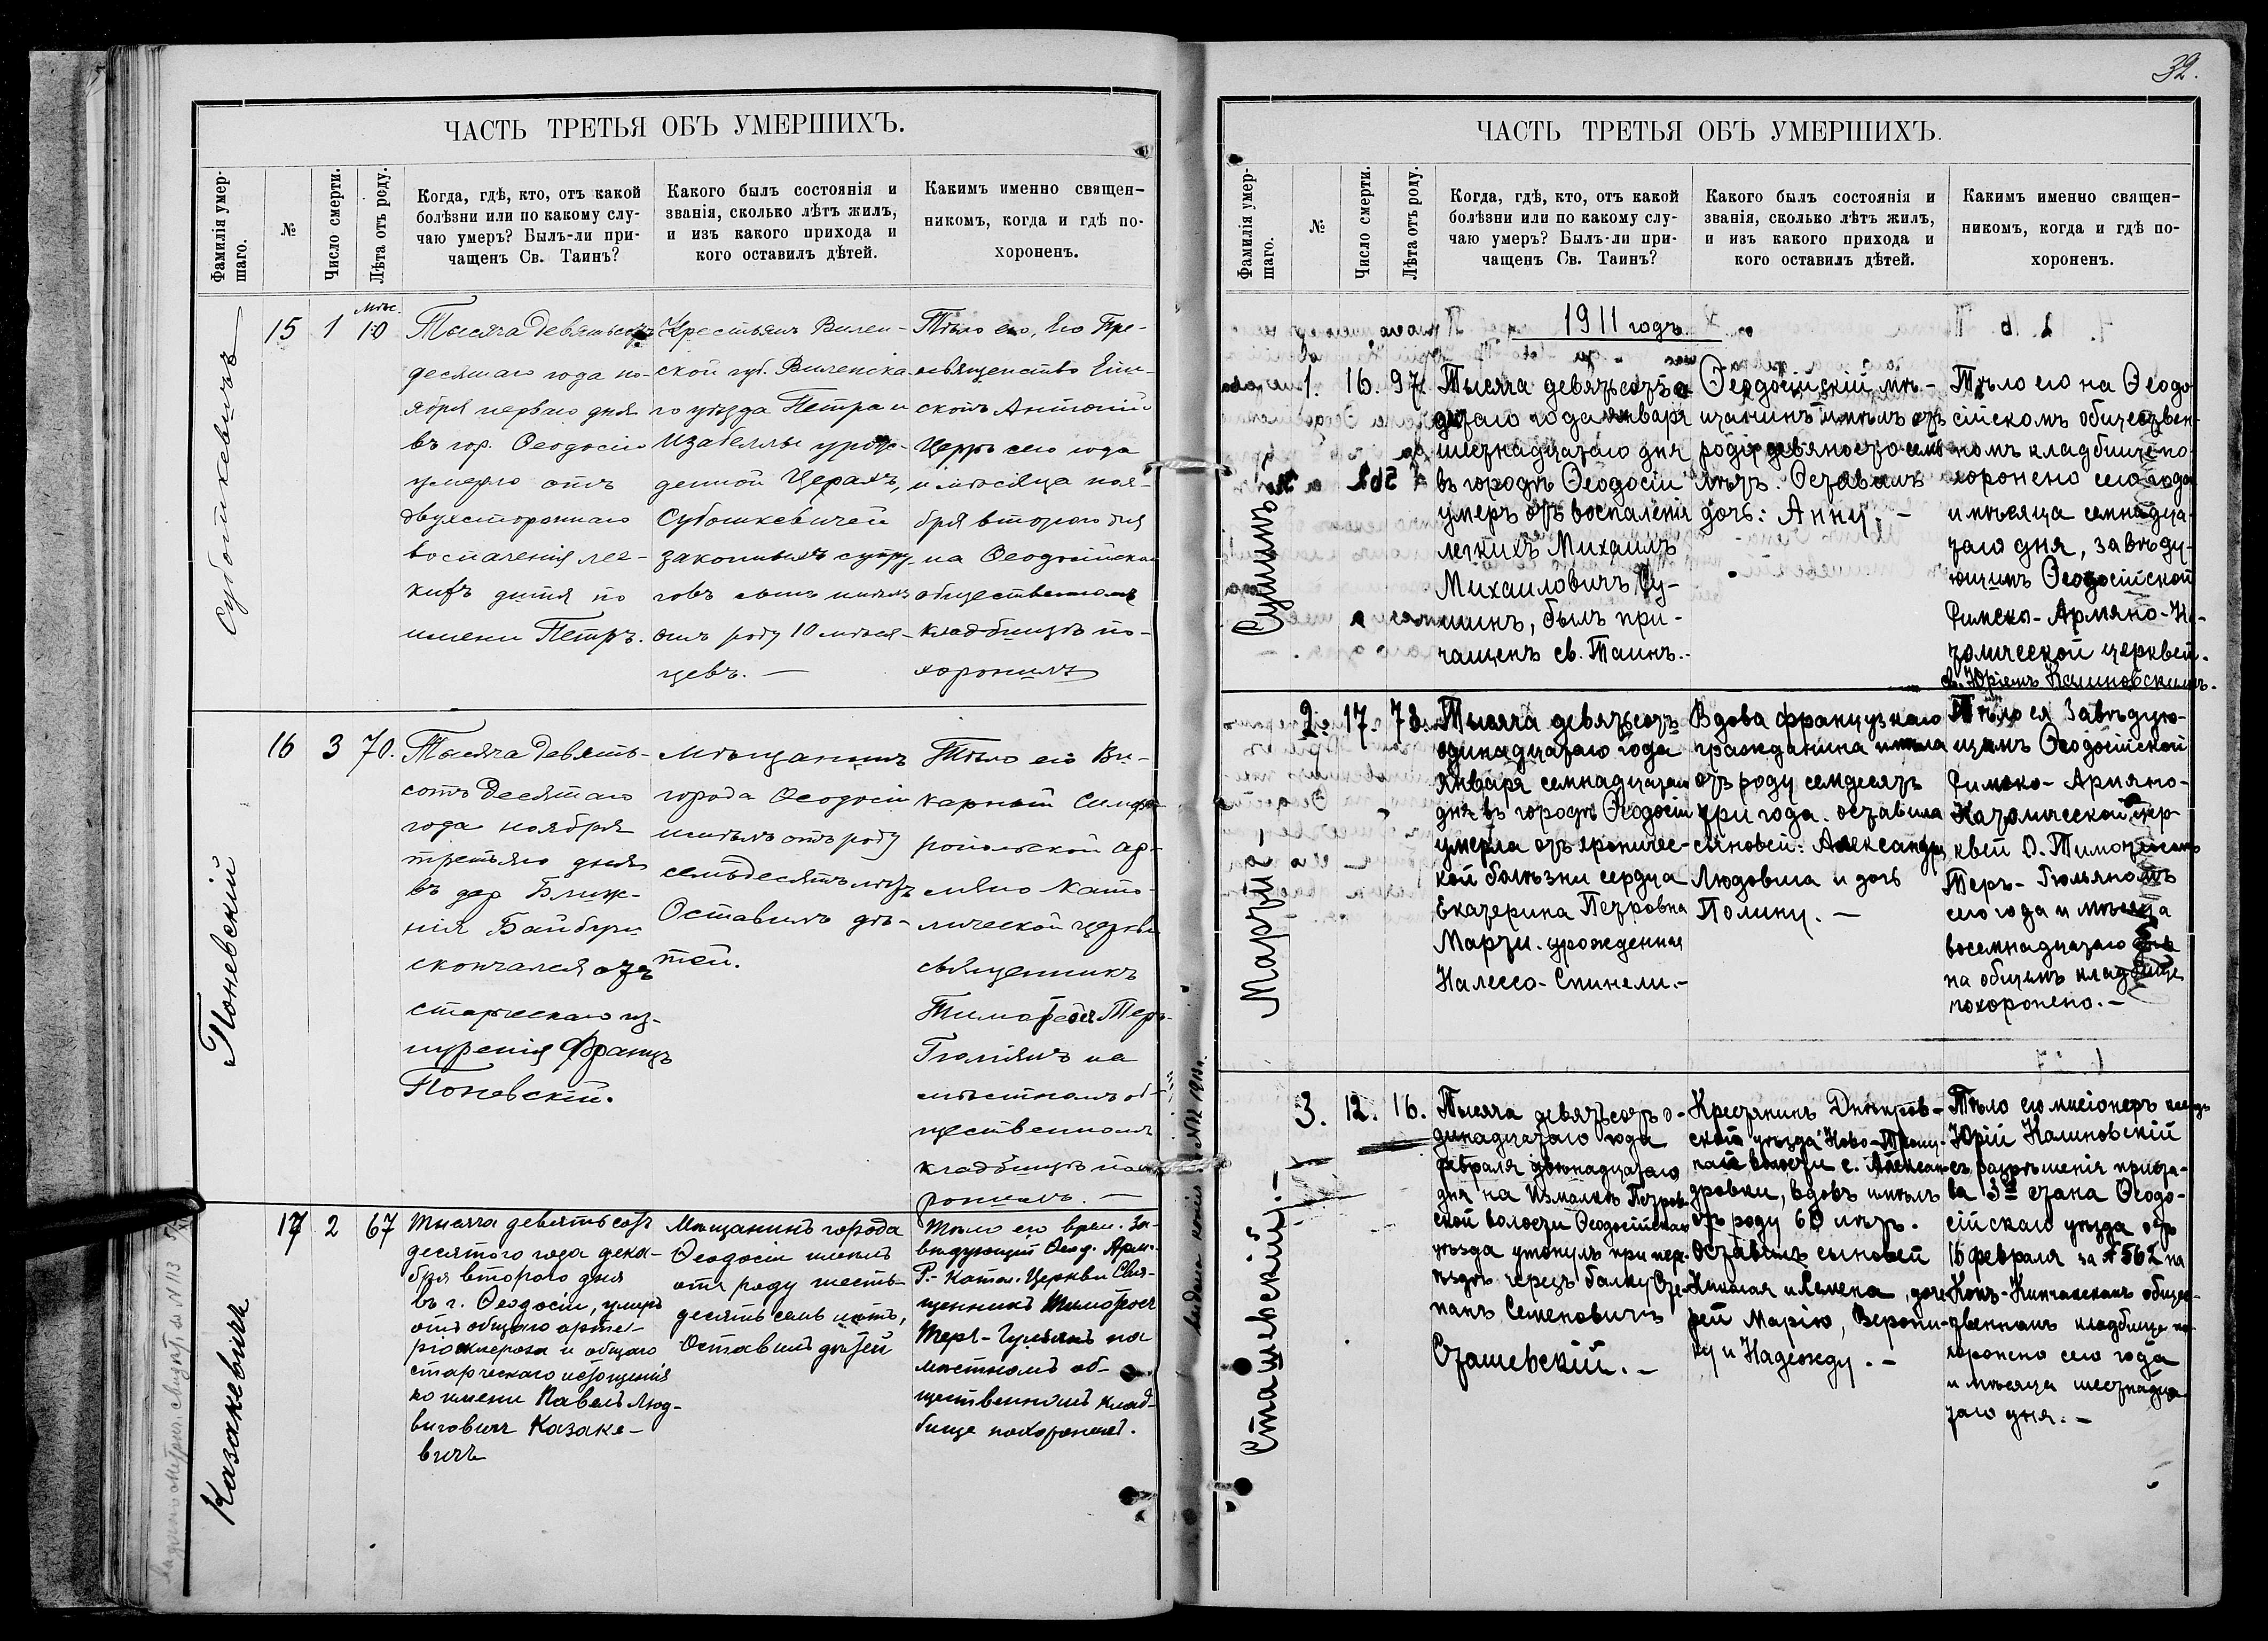 32.
ЧАСТЬ ТРЕТЬЯ ОБЪ УМЕРШИХЪ.
Фамилія умер-
шаго.
№
Число смерти.
Лѣта отъ роду.
Когда, гдѣ, кто, отъ какой
болѣзни или по какому слу-
чаю умеръ? Былъ-ли при-
чащенъ Св. Таинъ?
Какого былъ состоянія и
званія, сколько лѣтъ жилъ,
и изъ какого прихода и
кого оставилъ дѣтей.
Какимъ именно священ-
никомъ, когда и гдѣ по-
хороненъ.
Суботкевичъ
15
1
мѣс.
10
Тысяча девятьсотъ
десятаго года но-
ября перваго дня
въ гор. Ѳеодосіи
умерло отъ
двухсторонняго
воспаленія лег-
кихъ дитя по
имени Петръ.
Крестьянъ Вилен-
ской губ. Виленска-
го уѣзда Петра и
Изабеллы урож-
денной Церахъ,
законныхъ супру-
говъ сынъ имѣлъ
отъ роду 10 мѣся-
цевъ. —
Тѣло его, Его Пре-
освященство Епи-
скопъ Антоній
Церръ сего года
и мѣсяца ноя-
бря второго дня
на Ѳеодосійском
общественномъ
кладбищѣ по-
хоронилъ
Поневскій
16
3
70.
Тысяча девять-
сотъ десятаго
года ноября
третьяго дня
въ дер Ближ-
нія Байбуги
скончался отъ
старческаго из-
нуренія Францъ
Поневскій.
Мѣщанинъ
города Ѳеодосіи
имѣлъ отъ роду
семьдесятъ лѣтъ
Оставилъ дѣ-
тей.
Тѣло его Ви-
карный Симфе-
ропольской ар-
мяно Като-
лической церкви
священникъ
Тимофеосъ Теръ-
Гюліянъ на
мѣстномъ об-
щественномъ
кладбищѣ похо-
ронилъ. —
Казакевичъ
17
2
67
Тысяча девятьсотъ
десятого года дека-
бря второго дня
въ г. Ѳеодосіи, умеръ
отъ общаго арте-
ріосклероза и общаго
старческаго истощенія
по имени Павелъ Люд-
виговичъ Казаке-
вичъ
Мѣщанинъ города
Ѳеодосіи имѣлъ
отъ роду шесть-
десять семь лѣтъ,
Оставилъ дѣтей
Тѣло его врем. За-
вѣдующій Ѳеод. Арм.
Р.-Катол. Церкви Свя-
щенникъ Тимофеосъ
Теръ-Гюльянъ на
мѣстномъ об-
щественномъ клад-
бище похороненъ.
ЧАСТЬ ТРЕТЬЯ ОБЪ УМЕРШИХЪ.
Фамилія умер-
шаго.
№
Число смерти.
Лѣта отъ роду.
Когда, гдѣ, кто, отъ какой
болѣзни или по какому слу-
чаю умеръ? Былъ-ли при-
чащенъ Св. Таинъ?
Какого былъ состоянія и
званія, сколько лѣтъ жилъ,
и изъ какого прихода и
кого оставилъ дѣтей.
Какимъ именно священ-
никомъ, когда и гдѣ по-
хороненъ.
1911 годъ.
Сушинъ
1.
16.
97
Тысяча девятьсотъ о
датаго года января
шестнадцатаго дня
въ городѣ Ѳеодосіи
умеръ отъ воспаленія
легкихъ Михаилъ
Михаиловичъ Су-
шинъ, былъ при-
чащенъ св. Таинъ.-
Ѳеодосійскій мѣ-
щанинъ имѣлъ отъ
роду девяносто семь
лѣтъ. Оставилъ
дочь: Анну. —
Тѣло его на Ѳеодо
сійскомъ обществен-
номъ кладбище по-
хоронено сего года
и мѣсяца семнадца-
таго дня, завѣду-
ющимъ Ѳеодосійской
Римско-Армяно-Ка-
толической церквей.
Юріемъ Калиновскимъ.
Марзи —
2.
17.
73.
Тысяча девятьсотъ
одинадцатаго года
января семнадцатаго
дня въ городѣ Ѳеодосіи
умерла отъ хроничес-
кой болѣзни сердца
Екатерина Петровна
Марзи. урожденная
Халессо-Спинели.-
Вдова французкаго
гражданина имѣла
отъ роду семдесятъ
три года. оставила
сыновей: Александра
Людовика и дочь
Полину. —
Тѣло ея Завѣдую-
щимъ Ѳеодосійской
Римско-Армяно-
Католической цер
квей О. Тимофеосомъ
Теръ-Гюльяномъ
сего года и мѣсяца
восемнадцатаго дня
на общемъ кладбище
похоронено.-
Сташевскій.-
3.
12.
16.
Тысяча девятьсотъ о-
динадцатаго года
февраля двѣнадцатаго
дня на Измалкъ Петров-
ской волости Ѳеодосійскаго
уѣзда утонулъ при пере-
ѣздѣ черезъ балку Сте-
панъ Семеновичъ
Сташевскій. -
Крестянинъ Днѣпров-
скаго уѣзда Ново-Троиц-
кой волости с. Алексан-
дровки, вдовъ имѣлъ
отъ роду 60 лѣтъ.
Оставилъ сыновей
Николая и Семена, доче-
рей Марію, Верони-
ку и Надежду. -
Тѣло его мисіонеръ ксендзъ
Юрій Калиновскій
съ разрѣшенія приста-
ва 3го стана Ѳеодо-
сійскаго уѣзда отъ
16 февраля за № 562 на
Кокъ-Кипчакскомъ общес-
твенномъ кладбище по-
хоронено сего года
и мѣсяца шестнадца-
таго дня. -